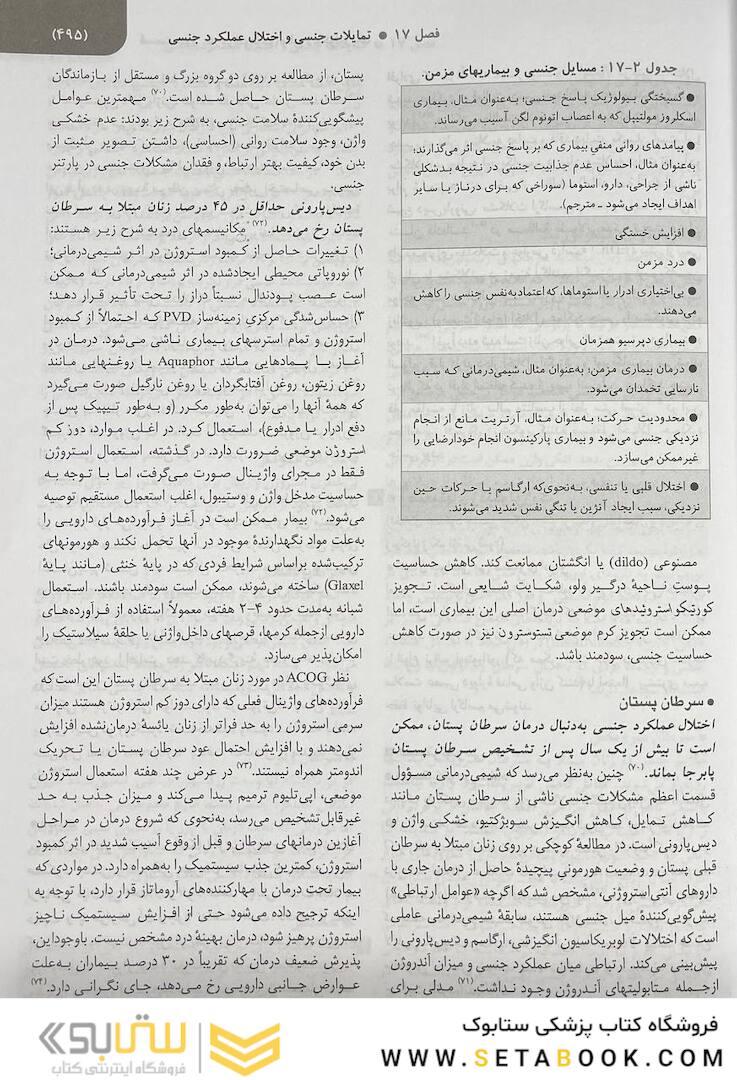 فصل ۱۷ ● تمایلات جنسی و اختلال عملکرد جنسی
(۴۹۵)
جدول ۲-۱۷ : مسایل جنسی و بیماریهای مزمن.
● گسیختگی بیولوژیک پاسخ جنسی؛ به‌عنوان مثال، بیماری
اسکلروز مولتیپل که به اعصاب اتونوم لگن آسیب می‌رساند.
● پیامدهای روانی منفی بیماری که بر پاسخ جنسی اثر می‌گذارند؛
به‌عنوان مثال، احساس عدم جذابیت جنسی در نتیجه بدشکلی
ناشی از جراحی، دارو، استوما (سوراخی که برای درناژ یا سایر
اهداف ایجاد می‌شود ـ مترجم).
● افزایش خستگی
● درد مزمن
● بی‌اختیاری ادرار یا استوماها، که اعتمادبه‌نفس جنسی را کاهش
می‌دهند.
● بیماری دپرسیو همزمان
● درمان بیماری مزمن؛ به‌عنوان مثال، شیمی‌درمانی که سبب
نارسایی تخمدان می‌شود.
● محدودیت حرکت؛ به‌عنوان مثال، آرتریت مانع از انجام
نزدیکی جنسی می‌شود و بیماری پارکینسون انجام خودارضایی را
غیرممکن می‌سازد.
● اختلال قلبی یا تنفسی، به‌نحوی‌که ارگاسم یا حرکات حین
نزدیکی، سبب ایجاد آنژین یا تنگی نفس شدید می‌شوند.
مصنوعی (dildo) یا انگشتان ممانعت کند. کاهش حساسیت
پوستِ ناحیهٔ درگیر ولو، شکایت شایعی است. تجویز
کورتیکواستروئیدهای موضعی درمان اصلی این بیماری است، اما
ممکن است تجویز کرم موضعی تستوسترون نیز در صورت کاهش
حساسیت جنسی، سودمند باشد.
● سرطان پستان
اختلال عملکرد جنسی به‌دنبال درمان سرطان پستان، ممکن
است تا بیش از یک سال پس از تشخیص سرطان پستان
پابرجا بماند.(۷۰) چنین به‌نظر می‌رسد که شیمی‌درمانی مسؤول
قسمت اعظم مشکلات جنسی ناشی از سرطان پستان مانند
کاهش تمایل، کاهش انگیزش سوبژکتیو، خشکی واژن و
دیس‌پارونی است. در مطالعهٔ کوچکی بر روی زنان مبتلا به سرطان
قبلی پستان و وضعیت هورمونیِ پیچیدهٔ حاصل از درمان جاری با
داروهای آنتی‌استروژنی، مشخص شد که اگرچه «عوامل ارتباطی»
پیش‌گویی‌کنندهٔ میل جنسی هستند، سابقهٔ شیمی‌درمانی عاملی
است که اختلالات لوبریکاسیون انگیزشی، ارگاسم و دیس‌پارونی را
پیش‌بینی می‌کند. ارتباطی میان عملکرد جنسی و میزان آندروژن
ازجمله متابولیتهای آندروژن وجود نداشت.(۷۱) مدلی برای
پستان، از مطالعه بر روی دو گروه بزرگ و مستقل از بازماندگان
سرطان پستان حاصل شده است.(۷۰) مهمترین عوامل
پیشگویی‌کنندهٔ سلامت جنسی، به شرح زیر بودند: عدم خشکی
واژن، وجود سلامت روانی (احساسی)، داشتن تصویر مثبت از
بدن خود، کیفیت بهتر ارتباط، و فقدان مشکلات جنسی در پارتنر
جنسی.
دیس‌پارونی حداقل در ۴۵ درصد زنان مبتلا به سرطان
پستان رخ می‌دهد.(۷۲) مکانیسمهای درد به شرح زیر هستند:
۱) تغییرات حاصل از کمبود استروژن در اثر شیمی‌درمانی؛
۲) نوروپاتی محیطی ایجادشده در اثر شیمی‌درمانی که ممکن
است عصب پودندال نسبتاً دراز را تحت تأثیر قرار دهد؛
۳) حساس‌شدگی مرکزیِ زمینه‌ساز PVD که احتمالاً از کمبود
استروژن و تمام استرسهای بیماری ناشی می‌شود. درمان در
آغاز با پمادهایی مانند Aquaphor یا روغنهایی مانند
روغن زیتون، روغن آفتابگردان یا روغن نارگیل صورت می‌گیرد
که همهٔ آنها را می‌توان به‌طور مکرر (و به‌طور تیپیک پس از
دفع ادرار یا مدفوع)، استعمال کرد. در اغلب موارد، دوز کم
استروژن موضعی ضرورت دارد. در گذشته، استعمال استروژن
فقط در مجرای واژینال صورت می‌گرفت، اما با توجه به
حساسیت مدخل واژن و وستیبول، اغلب استعمال مستقیم توصیه
می‌شود.(۷۲) بیمار ممکن است در آغاز فرآورده‌های دارویی را
به‌علت مواد نگهدارندهٔ موجود در آنها تحمل نکند و هورمونهای
ترکیب‌شده براساس شرایط فردی که در پایهٔ خنثی (مانند پایهٔ
Glaxel) ساخته می‌شوند، ممکن است سودمند باشند. استعمال
شبانه به‌مدت حدود ۴-۲ هفته، معمولاً استفاده از فرآورده‌های
دارویی ازجمله کرمها، قرصهای داخل‌واژنی یا حلقهٔ سیلاستیک را
امکان‌پذیر می‌سازد.
نظر ACOG در مورد زنان مبتلا به سرطان پستان این است که
فرآورده‌های واژینال فعلی که دارای دوز کم استروژن هستند میزان
سرمی استروژن را به حد فراتر از زنان یائسهٔ درمان‌نشده افزایش
نمی‌دهند و با افزایش احتمال عود سرطان پستان یا تحریک
اندومتر همراه نیستند.(۷۳) در عرض چند هفته استعمال استروژن
موضعی، اپی‌تلیوم ترمیم پیدا می‌کند و میزان جذب به حد
غیرقابل‌تشخیص می‌رسد، به‌نحوی‌که شروع درمان در مراحل
آغازین درمانهای سرطان و قبل از وقوع آسیب شدید در اثر کمبود
استروژن، کمترین جذب سیستمیک را به‌همراه دارد. در مواردی که
بیمار تحت درمان با مهارکننده‌های آروماتاز قرار دارد، با توجه به
اینکه ترجیح داده می‌شود حتی از افزایش سیستمیک ناچیز
استروژن پرهیز شود، درمان بهینهٔ درد مشخص نیست. باوجوداین،
پذیرش ضعیف درمان که تقریباً در ۳۰ درصد بیماران به‌علت
عوارض جانبی دارویی رخ می‌دهد، جای نگرانی دارد.(۷۴)
فروشگاه کتاب پزشکی ستابوک
WWW.SETABOOK.COM
ستابوک
فروشگاه اینترنتی کتاب